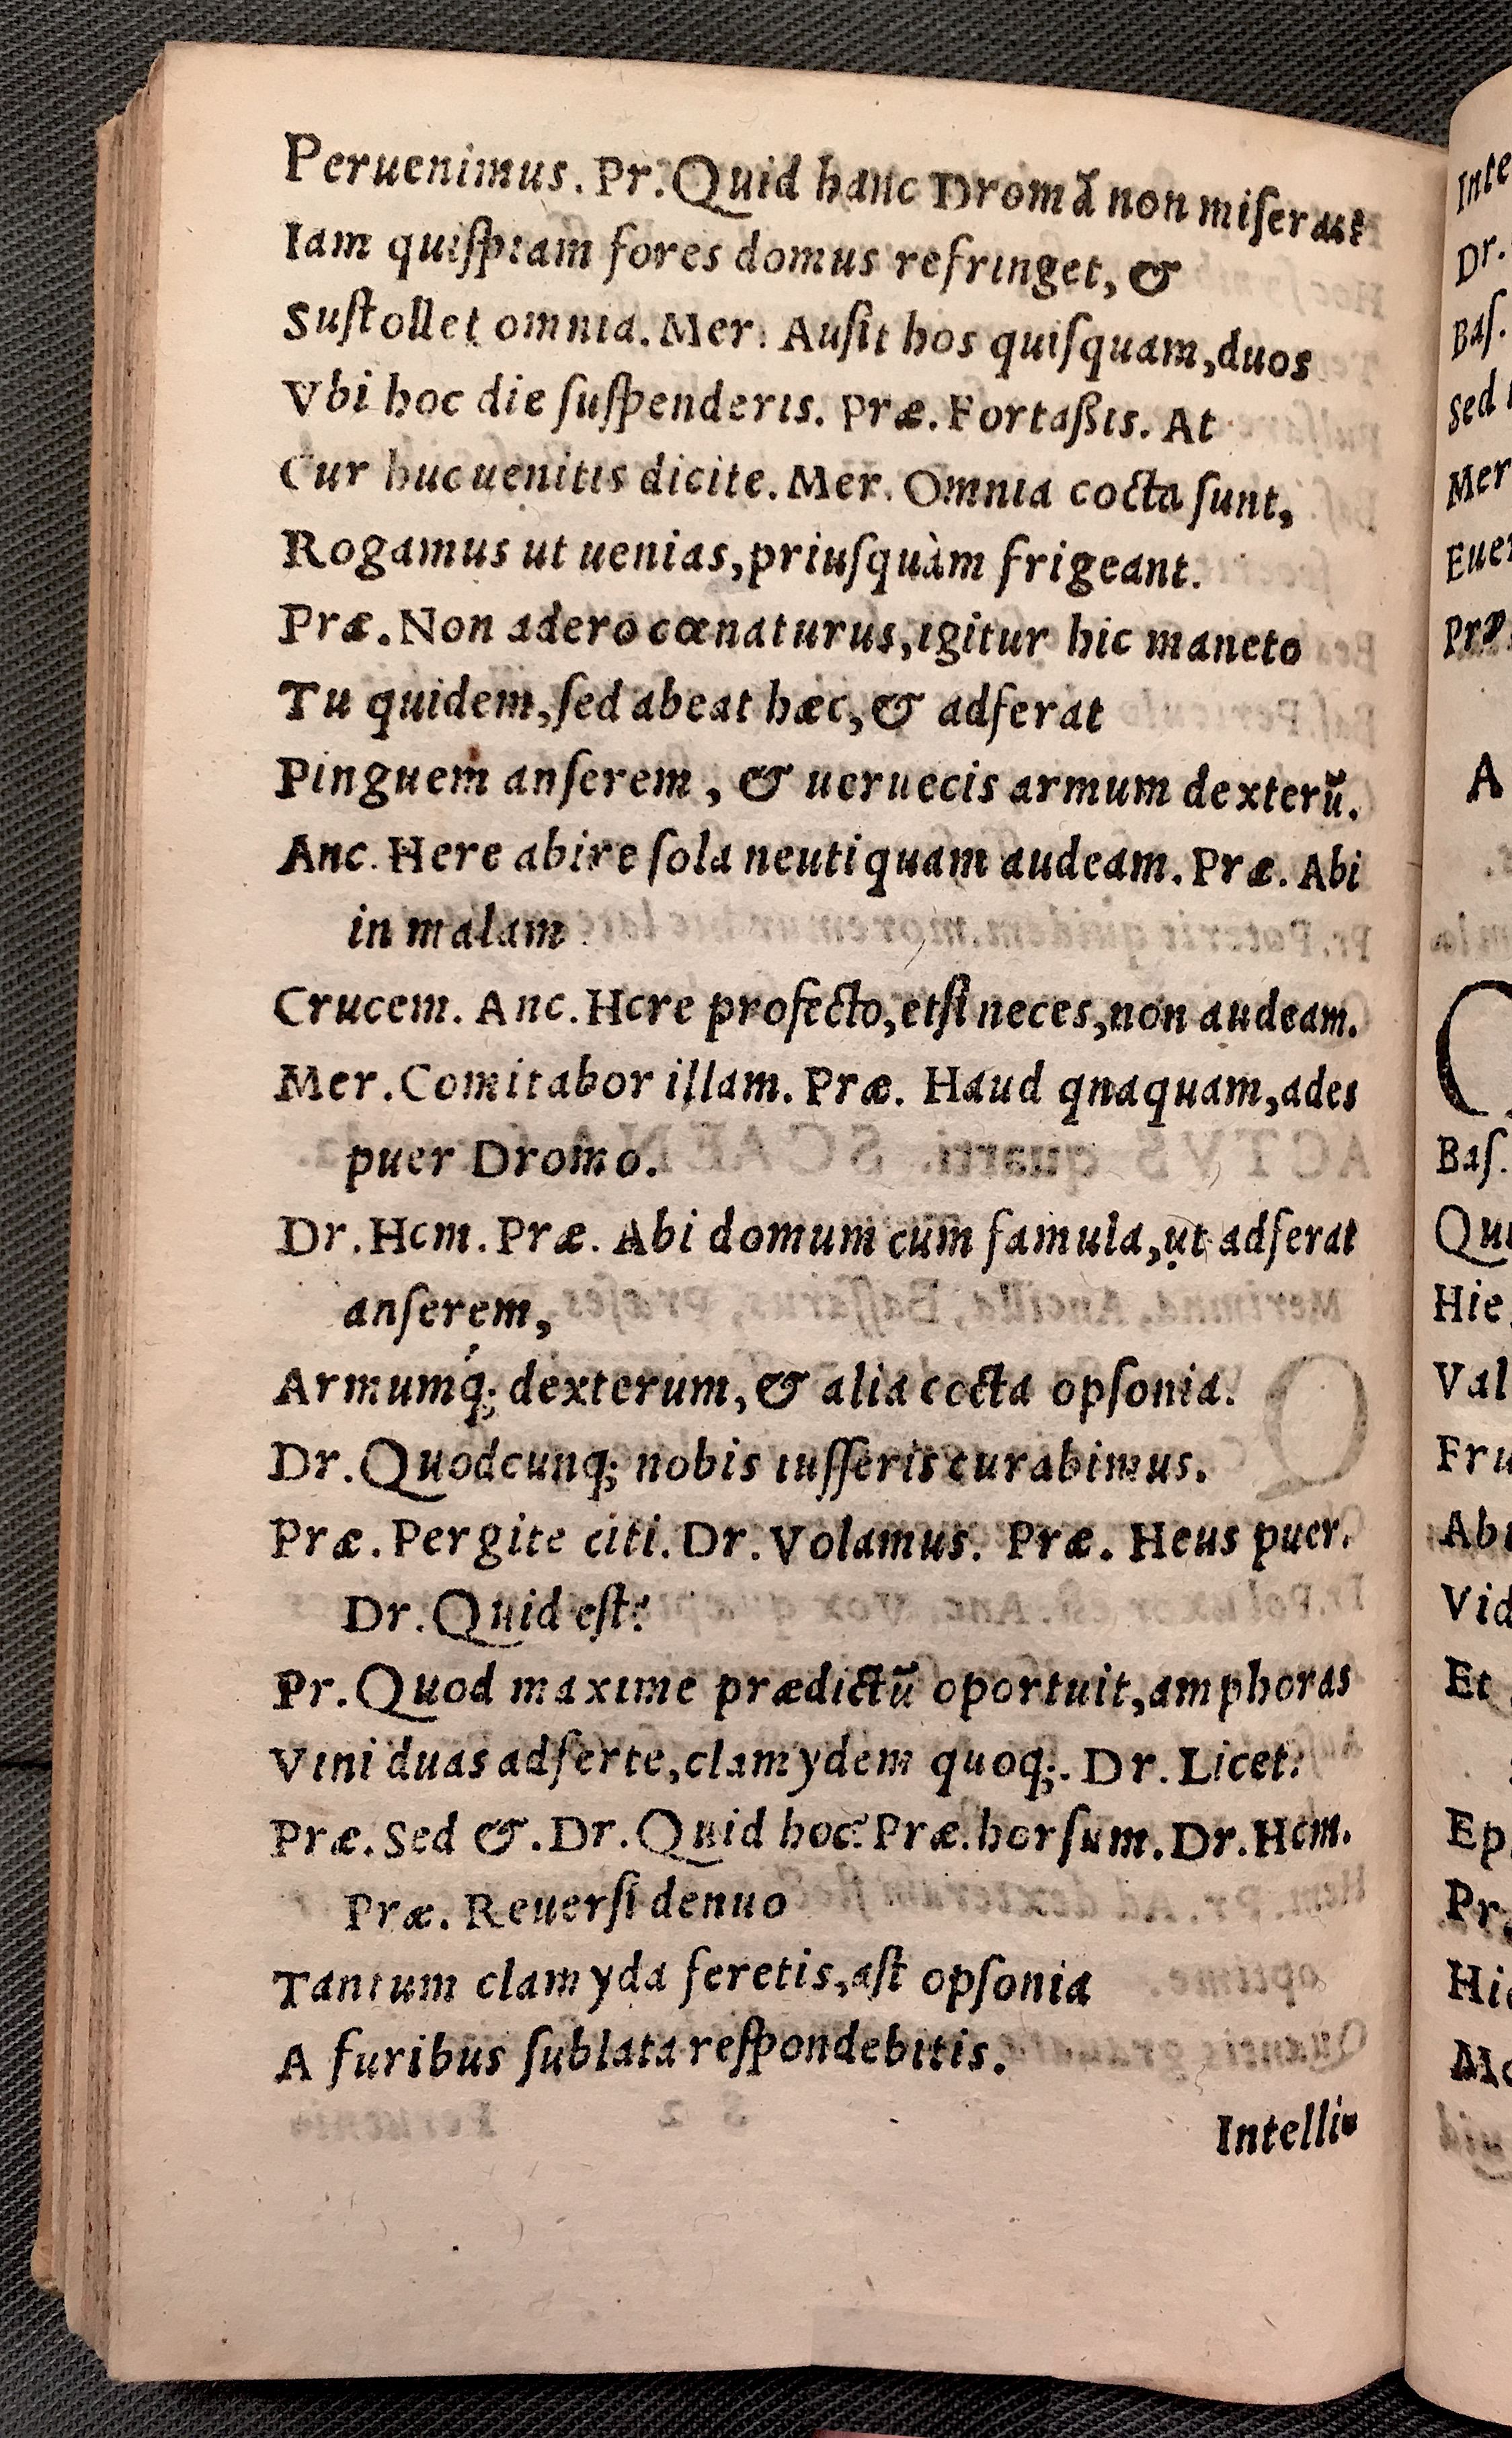 Peruenimus. Pr. Quid hanc Dromã non miserat
Iam quiſpiam fores domus refringet, &
Suſtollet omnia. Mer. Auſit hos quiſquam, duos
Vbi hoc die ſuſpenderis. Præ. Fortaßis. At
Cur huc uenitis dicite. Mer. Omnia cocta ſunt,
Rogamus ut uenias, priuſquàm frigeant.
Præ. Non adero cœnaturus, igitur hic maneto
Tu quidem, ſed abeat hæc, & adferat
Pinguem anſerem, & ueruecis armum dexterũ.
Anc. Here abire ſola neutiquam audeam. Præ. Abi
in malam
Crucem. Anc. Here profecto, etſi neces, non audeam.
Mer. Comitabor illam. Præ. Haud qnaquam, ades
puer Dromo.
Dr. Hem. Præ. Abi domum cum famula, ut adferat
anſerem,
Armumq́; dexterum, & alia cocta opſonia.
Dr. Quodcunq; nobis iuſſeris curabimus.
Præ. Pergite citi. Dr. Volamus. Præ. Heus puer.
Dr. Quid eſt?
Pr. Quod maxime prædictũ oportuit, amphoras
Vini duas adferte, clamydem quoq;. Dr. Licet.
Præ. Sed &. Dr. Quid hoc? Præ. horſum. Dr. Hem.
Præ. Reuerſi denuo
Tantum clamyda feretis, aſt opſonia
A furibus ſublata reſpondebitis.
Intelli-
Inte
Dr.
Baſ.
Sed
Mer
Euer
Præ
A
Baſ.
Qui
Hie
Val
Fru
Abi
Vid
Et
Ep
Pr
Hi